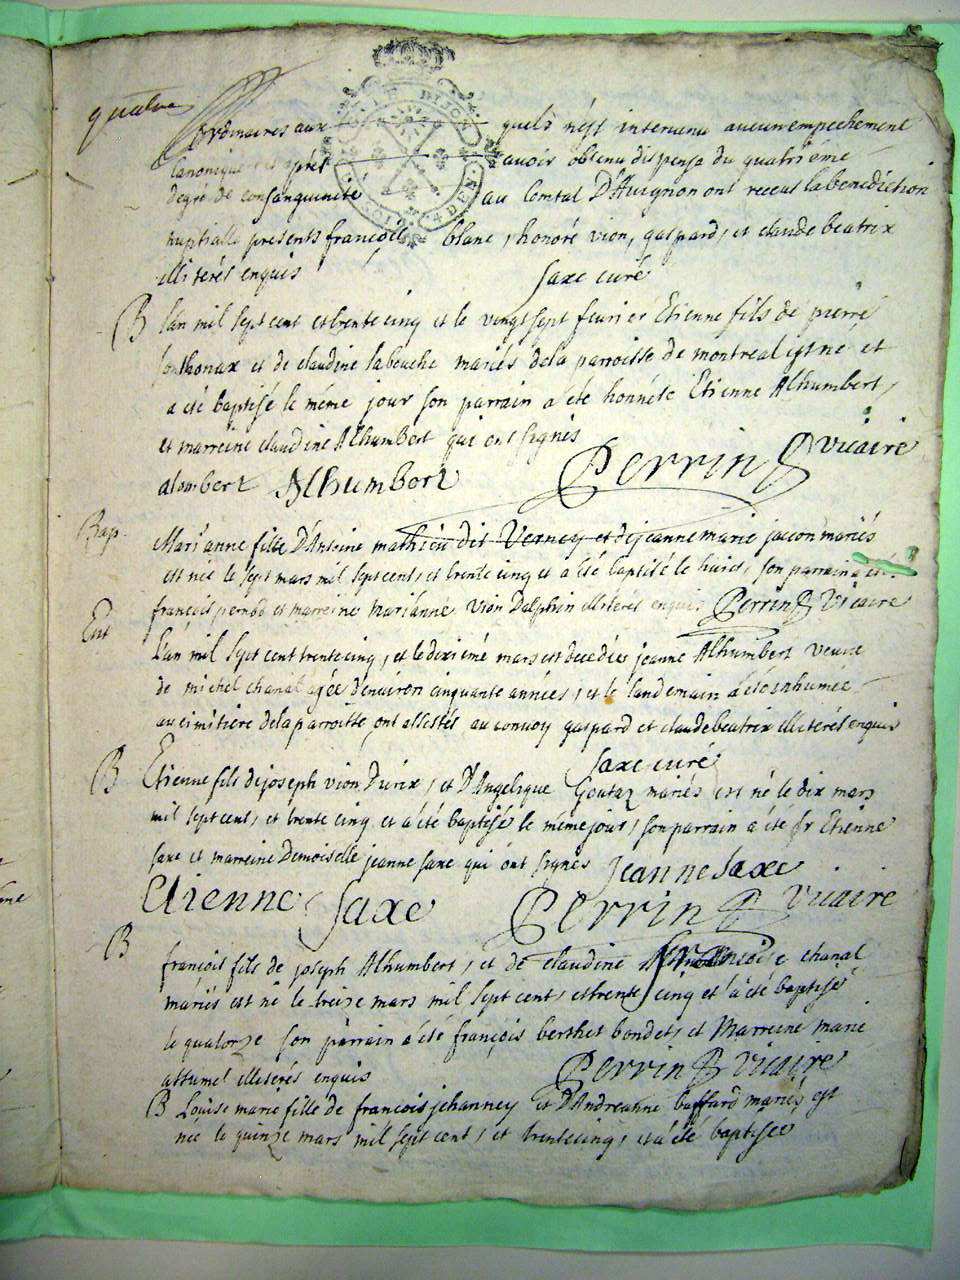 quatre
ordinaires aux quels n'est intervenu aucun empechement
canonique et après avoir obtenu dispense du quatriéme
degré de consanguinité au Comtal D'Avignon ont receus la benediction
nuptiale presents françois blanc, honoré vion, gaspard, et claude beatrix
illiterés enquis
Saxe curé
B L'an mil sept cent et trente cinq et le vingt sept feurier Etienne fils de pierre
Sonthonax et de claudine labouche mariés de la parroisse de montreal est né et
a été baptisé le méme jour son parrain a été honnéte Etienne Alhumbert,
et marreine claudine Alhumbert qui ont signés
alombert Alhumbert Perrin vicaire
Bap. Mari anne fille D'Antoine mathieu dit Verney et de jeanne marie jacon mariés
est née le sept mars mil sept cent, et trente cinq et a été baptisé le huict, son parrain a été
françois pernod et marreine marianne vion Dalphin illiterés enquis Perrin Vicaire
Ent L'an mil sept cent trente cinq, et le dixiéme mars est decedée jeanne Alhumbert veuve
de michel chanal agée d'environ cinquante années, et le landemain a été inhumée
au cimitiere de la parroisse ont assistés au convoy gaspard et claude beatrix illiterés enquis
Saxe curé
B Etienne fils de joseph vion Durix, et D'Angelique Goutaz mariés est né le dix mars
mil sept cent, et trente cinq et a été baptisé le méme jour, son parrain a été sr Etienne
saxe et marreine Demoiselle jeanne saxe qui ont signés Jeanne Saxe
Etienne Saxe Perrin vicaire
B
françois fils de joseph Alhumbert, et de claudine françoise chanal
mariés est né le treize mars mil sept cent, et trente cinq et a été baptisé
le quatorze son parrain a été françois berthet bondet, et Marreine marie
assumel illiterés enquis Perrin vicaire
B Louise marie fille de françois jehanney et D'Andreanne buffard mariés est
née le quinze mars mil sept cent, et trente cinq, et a été baptisée